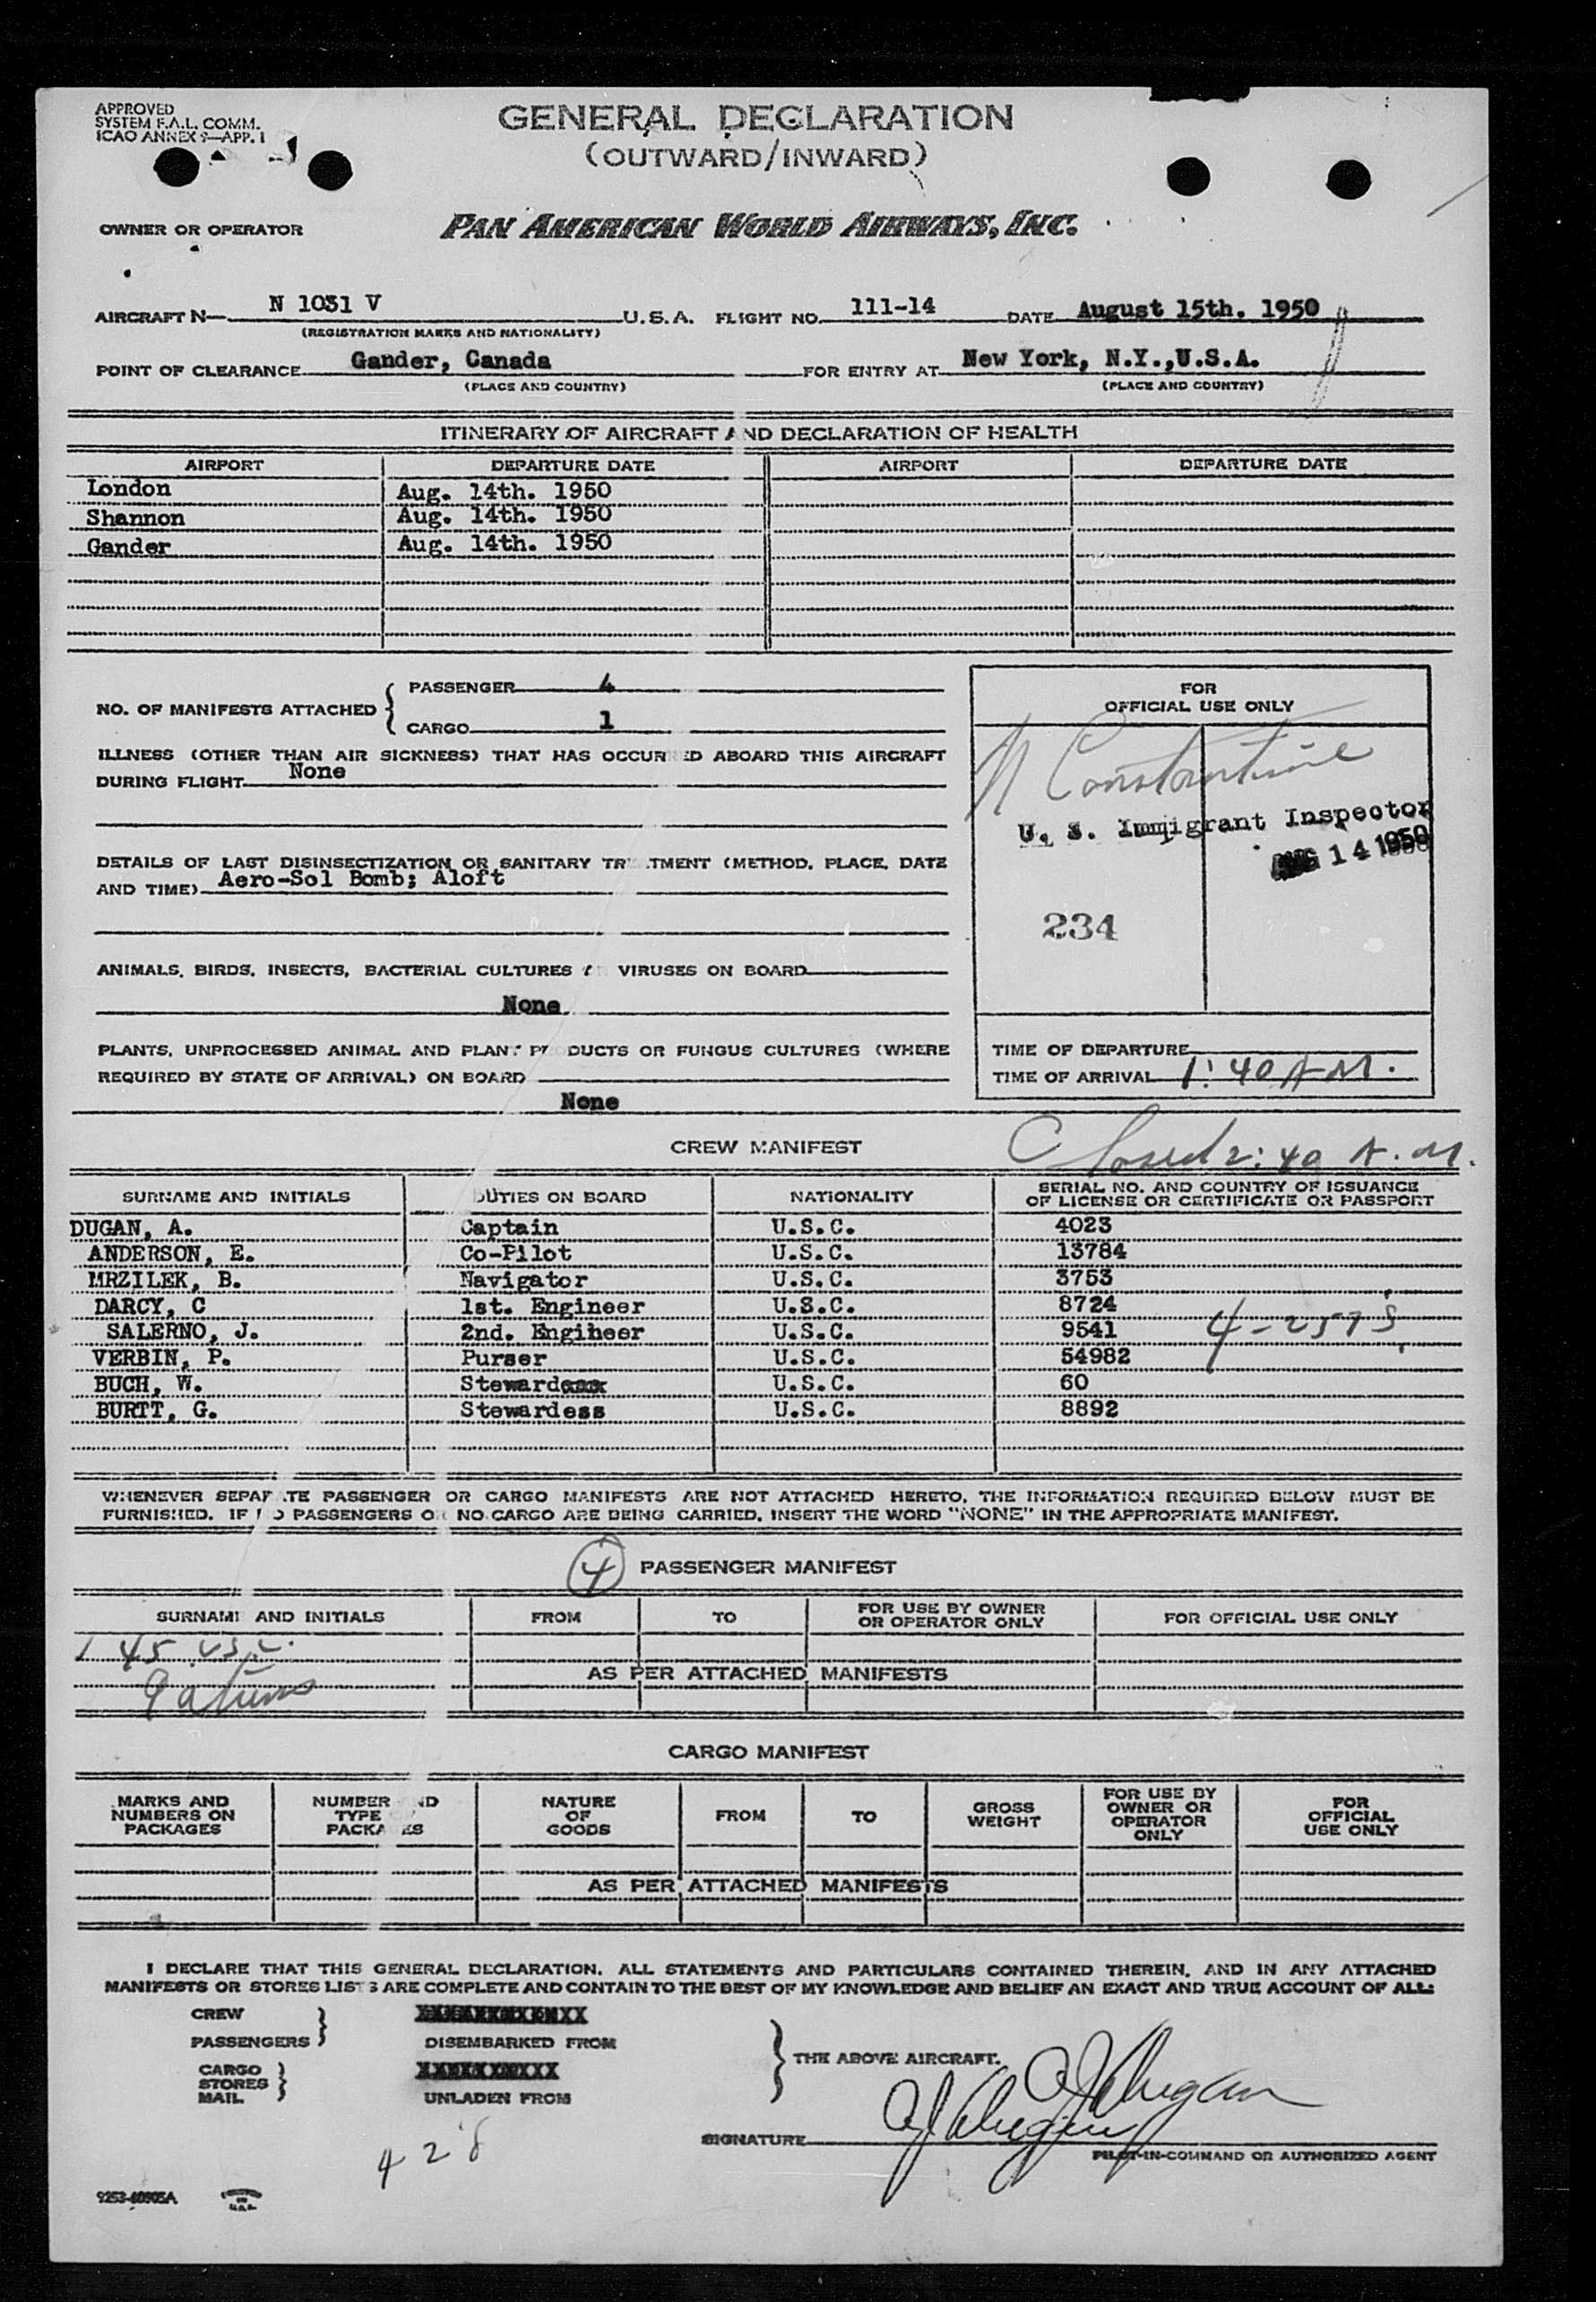 APPROVED
SYSTEM F.A.L. COMM.
ICAO ANNEX 9—APP. 1
GENERAL DECLARATION
(OUTWARD/INWARD)
OWNER OR OPERATOR PAN AMERICAN WORLD AIRWAYS, INC.
AIRCRAFT N— N 1031 V U.S.A. FLIGHT NO. 111-14 DATE August 15th. 1950
(REGISTRATION MARKS AND NATIONALITY)
POINT OF CLEARANCE Gander, Canada FOR ENTRY AT New York, N.Y.,U.S.A.
(PLACE AND COUNTRY) (PLACE AND COUNTRY)
ITINERARY OF AIRCRAFT AND DECLARATION OF HEALTH
AIRPORT DEPARTURE DATE AIRPORT DEPARTURE DATE
London Aug. 14th. 1950
Shannon Aug. 14th. 1950
Gander Aug. 14th. 1950
NO. OF MANIFESTS ATTACHED { PASSENGER 4
CARGO 1
ILLNESS (OTHER THAN AIR SICKNESS) THAT HAS OCCURRED ABOARD THIS AIRCRAFT
DURING FLIGHT None
DETAILS OF LAST DISINSECTIZATION OR SANITARY TREATMENT (METHOD, PLACE, DATE
AND TIME) Aero-Sol Bomb; Aloft
ANIMALS, BIRDS, INSECTS, BACTERIAL CULTURES OR VIRUSES ON BOARD
None
PLANTS, UNPROCESSED ANIMAL AND PLANT PRODUCTS OR FUNGUS CULTURES (WHERE
REQUIRED BY STATE OF ARRIVAL) ON BOARD
None
FOR
OFFICIAL USE ONLY
N Constantine
U. S. Immigrant Inspector
AUG 14 1950
234
TIME OF DEPARTURE
TIME OF ARRIVAL 1:40 A M.
Closed 2:40 A.M.
CREW MANIFEST
SURNAME AND INITIALS DUTIES ON BOARD NATIONALITY SERIAL NO. AND COUNTRY OF ISSUANCE
OF LICENSE OR CERTIFICATE OR PASSPORT
DUGAN, A. Captain U.S.C. 4023
ANDERSON, E. Co-Pilot U.S.C. 13784
MRZILEK, B. Navigator U.S.C. 3753
DARCY, C 1st. Engineer U.S.C. 8724
SALERNO, J. 2nd. Engiheer U.S.C. 9541
VERBIN, P. Purser U.S.C. 54982
BUCH, W. Steward U.S.C. 60
BURTT, G. Stewardess U.S.C. 8892
WHENEVER SEPARATE PASSENGER OR CARGO MANIFESTS ARE NOT ATTACHED HERETO, THE INFORMATION REQUIRED BELOW MUST BE
FURNISHED. IF NO PASSENGERS OR NO CARGO ARE BEING CARRIED, INSERT THE WORD "NONE" IN THE APPROPRIATE MANIFEST.
4 PASSENGER MANIFEST
SURNAME AND INITIALS FROM TO FOR USE BY OWNER
OR OPERATOR ONLY FOR OFFICIAL USE ONLY
45 U.S.C.
9 aliens
AS PER ATTACHED MANIFESTS
CARGO MANIFEST
MARKS AND
NUMBERS ON
PACKAGES
NUMBER AND
TYPE OF
PACKAGES
NATURE
OF
GOODS
FROM
TO
GROSS
WEIGHT
FOR USE BY
OWNER OR
OPERATOR
ONLY
FOR
OFFICIAL
USE ONLY
AS PER ATTACHED MANIFESTS
I DECLARE THAT THIS GENERAL DECLARATION, ALL STATEMENTS AND PARTICULARS CONTAINED THEREIN, AND IN ANY ATTACHED
MANIFESTS OR STORES LISTS ARE COMPLETE AND CONTAIN TO THE BEST OF MY KNOWLEDGE AND BELIEF AN EXACT AND TRUE ACCOUNT OF ALL:
CREW
PASSENGERS } DISEMBARKED FROM
CARGO
STORES
MAIL } UNLADEN FROM
} THE ABOVE AIRCRAFT.
A J Dugan
SIGNATURE A J Dugan
PILOT-IN-COMMAND OR AUTHORIZED AGENT
428